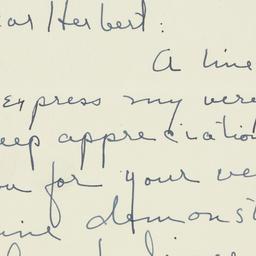 ear Herbert:
A line
express my very
eep appreciation
ou for your ve
ine demonst